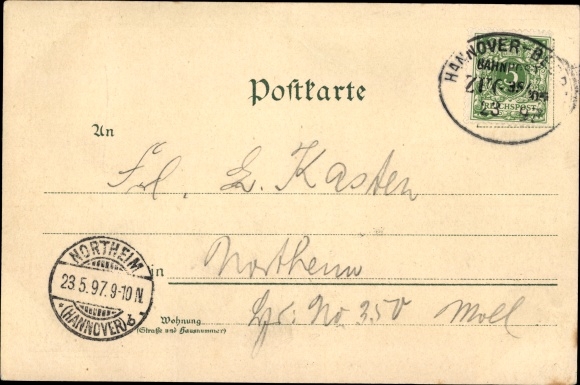 HANNOVER-B
BAHNPOST
ZUG
REICHSPOST
5
23 97
Postkarte
An
Frl. L. Kasten
NORTHEIM
23 5. 97. 9-10 N.
(HANNOVER)
in Northeim
No 350
Wohnung
(Straße und Hausnummer)